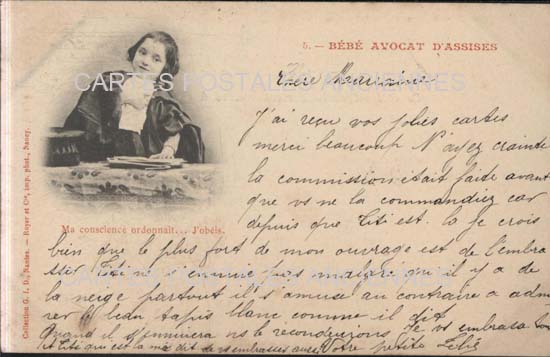 5. — BÉBÉ AVOCAT D'ASSISES
CARTES POSTALES ANCIENNES
Chère Marraine
J'ai reçu vos jolies cartes
merci beaucoup N'ayez crainte
la commission était faite avant
que vs ne la commandiez car
depuis que Titi est là je crois
Ma conscience ordonnait... J'obéis.
bien que le plus fort de mon ouvrage est de l'embra
sser Titi ne s'ennuie pas malgré qu'il y a de
CARTES POSTALES ANCIENNES
la neige partout il s'amuse au contraire a admi
rer le beau tapis blanc comme il dit
Quand il s'ennuiera ns le reconduirons Je vs embrasse bien
et Titi qui est là me dit de vs embrasser aussi Votre petite
Collection G. I. D., Nantes. — Royer et Cie, imp. phot., Nancy.